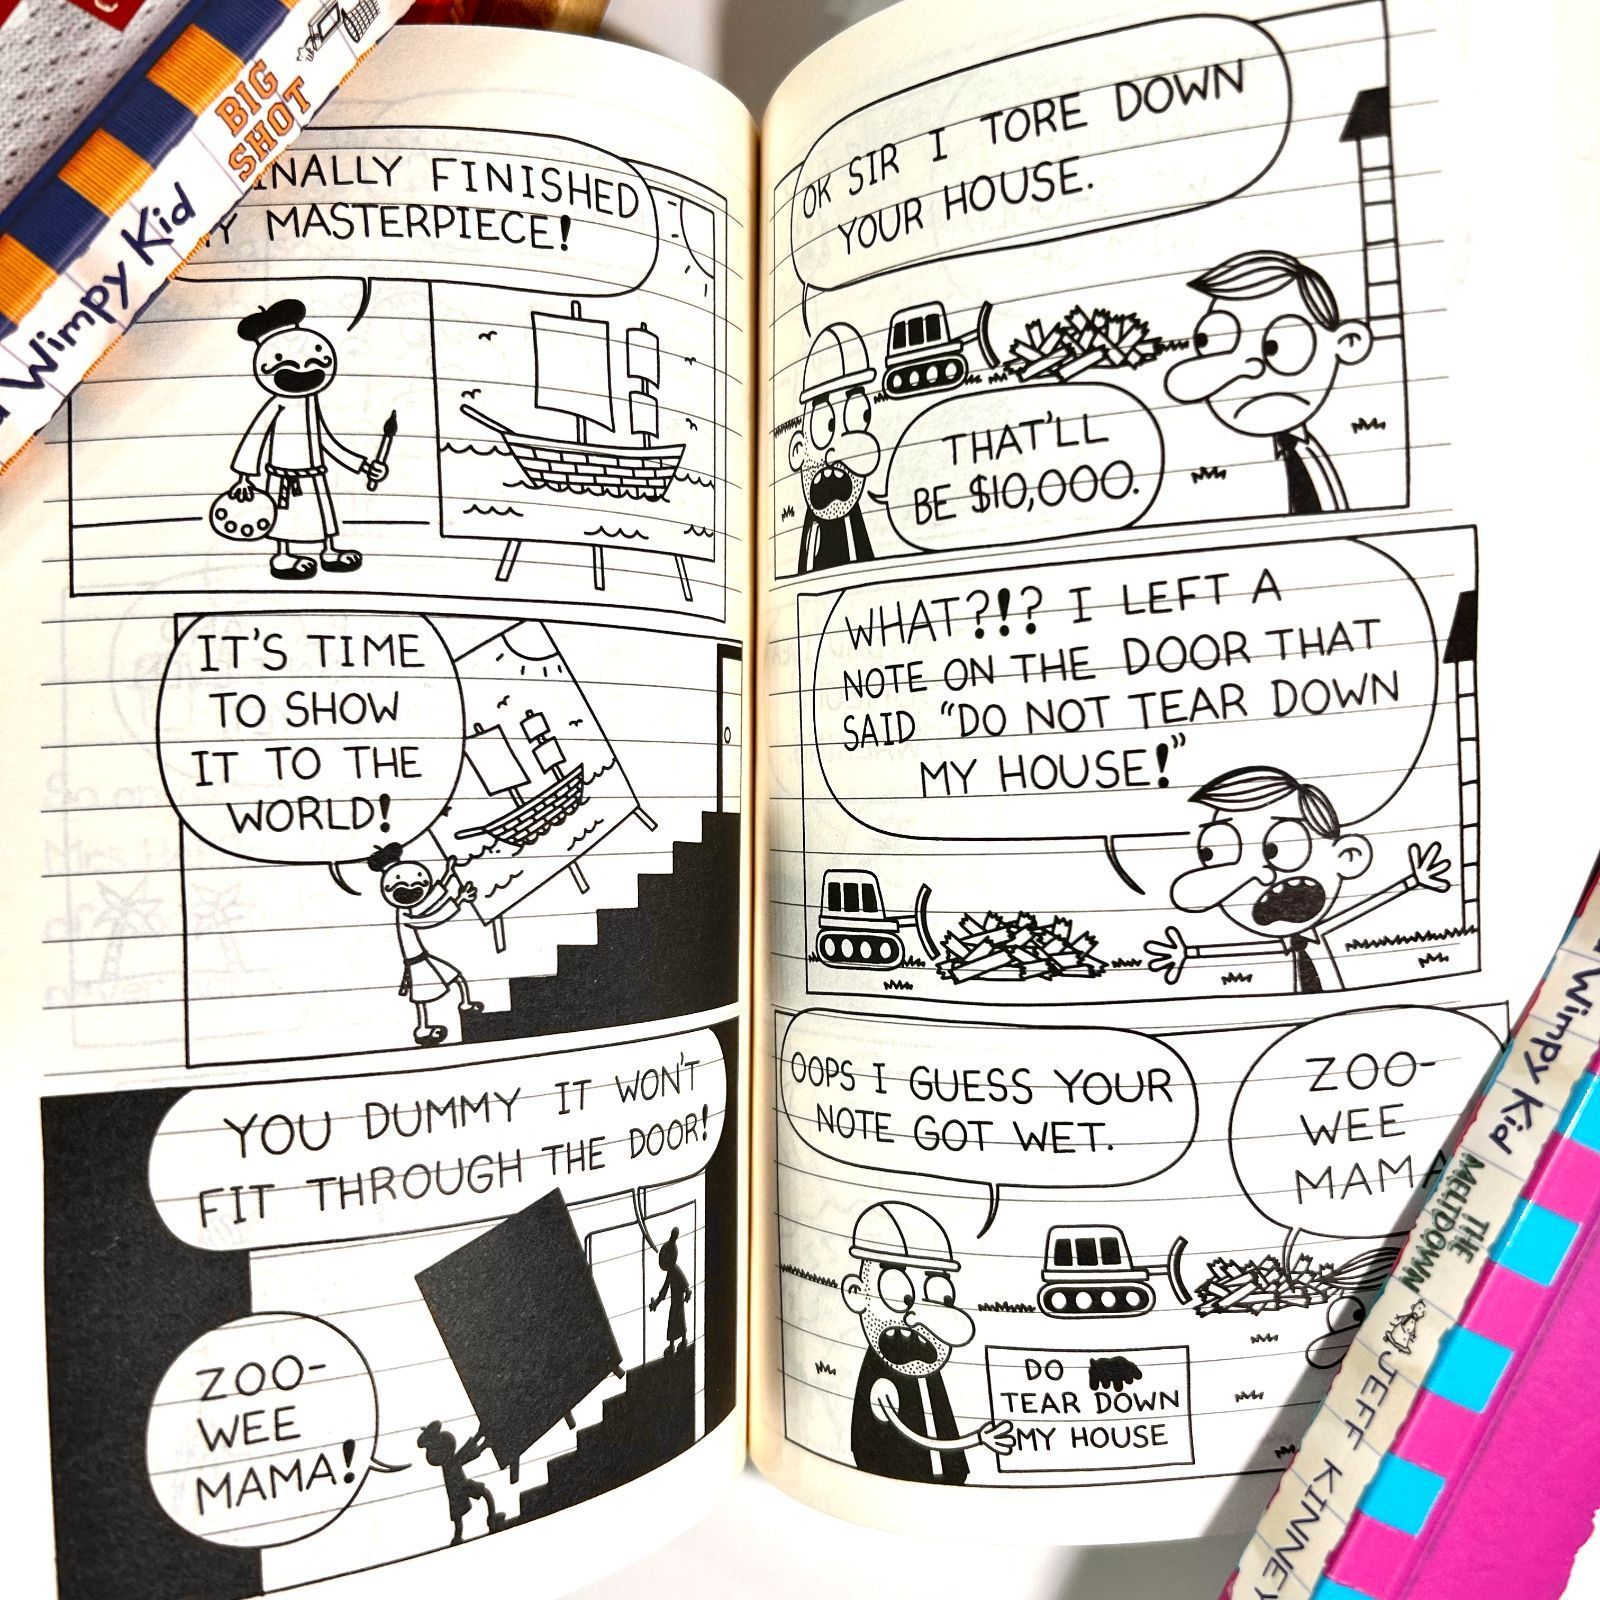 BIG
SHOT
Wimpy Kid
FINISHED
MASTERPIECE!
IT'S TIME
TO SHOW
IT TO THE
WORLD!
YOU DUMMY IT WON'T
FIT THROUGH THE DOOR!
ZOO-
WEE
MAMA!
OK SIR I TORE DOWN
YOUR HOUSE.
THAT'LL
BE $10,000.
WHAT?!? I LEFT A
NOTE ON THE DOOR THAT
SAID "DO NOT TEAR DOWN
MY HOUSE!"
OOPS I GUESS YOUR
NOTE GOT WET.
ZOO-
WEE
MAMA
DO
TEAR DOWN
MY HOUSE
Wimpy Kid
THE
MELTDOWN
JEFF KINNEY